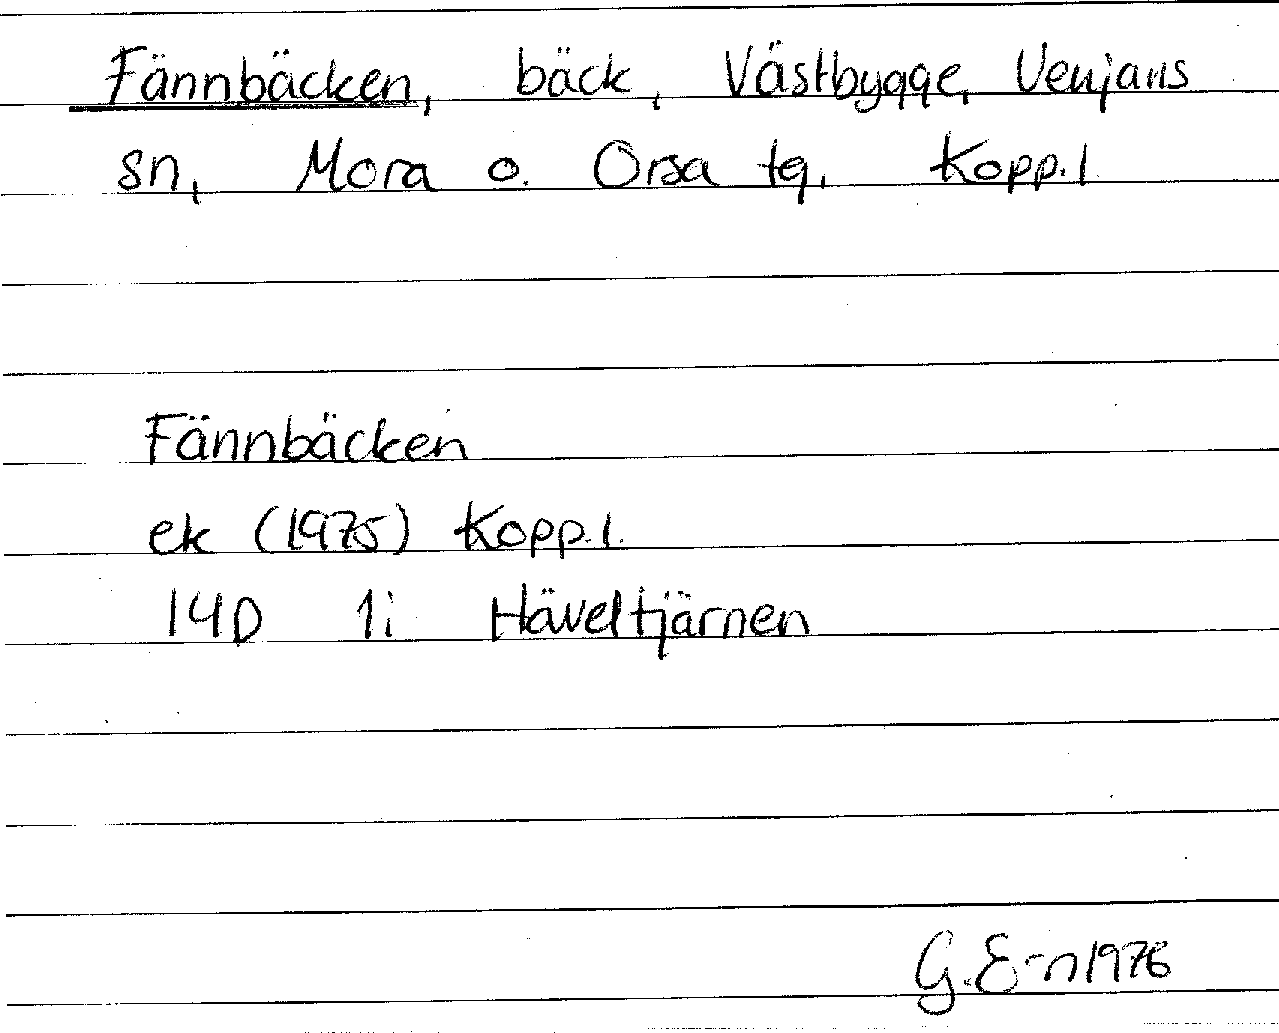 Fännbäcken, bäck, Västbygge, Venjans
sn, Mora o. Orsa tg, Kopp.l
Fännbäcken
ek (1975) Kopp.l.
14D 1i Häveltjärnen
G.E-n 1976